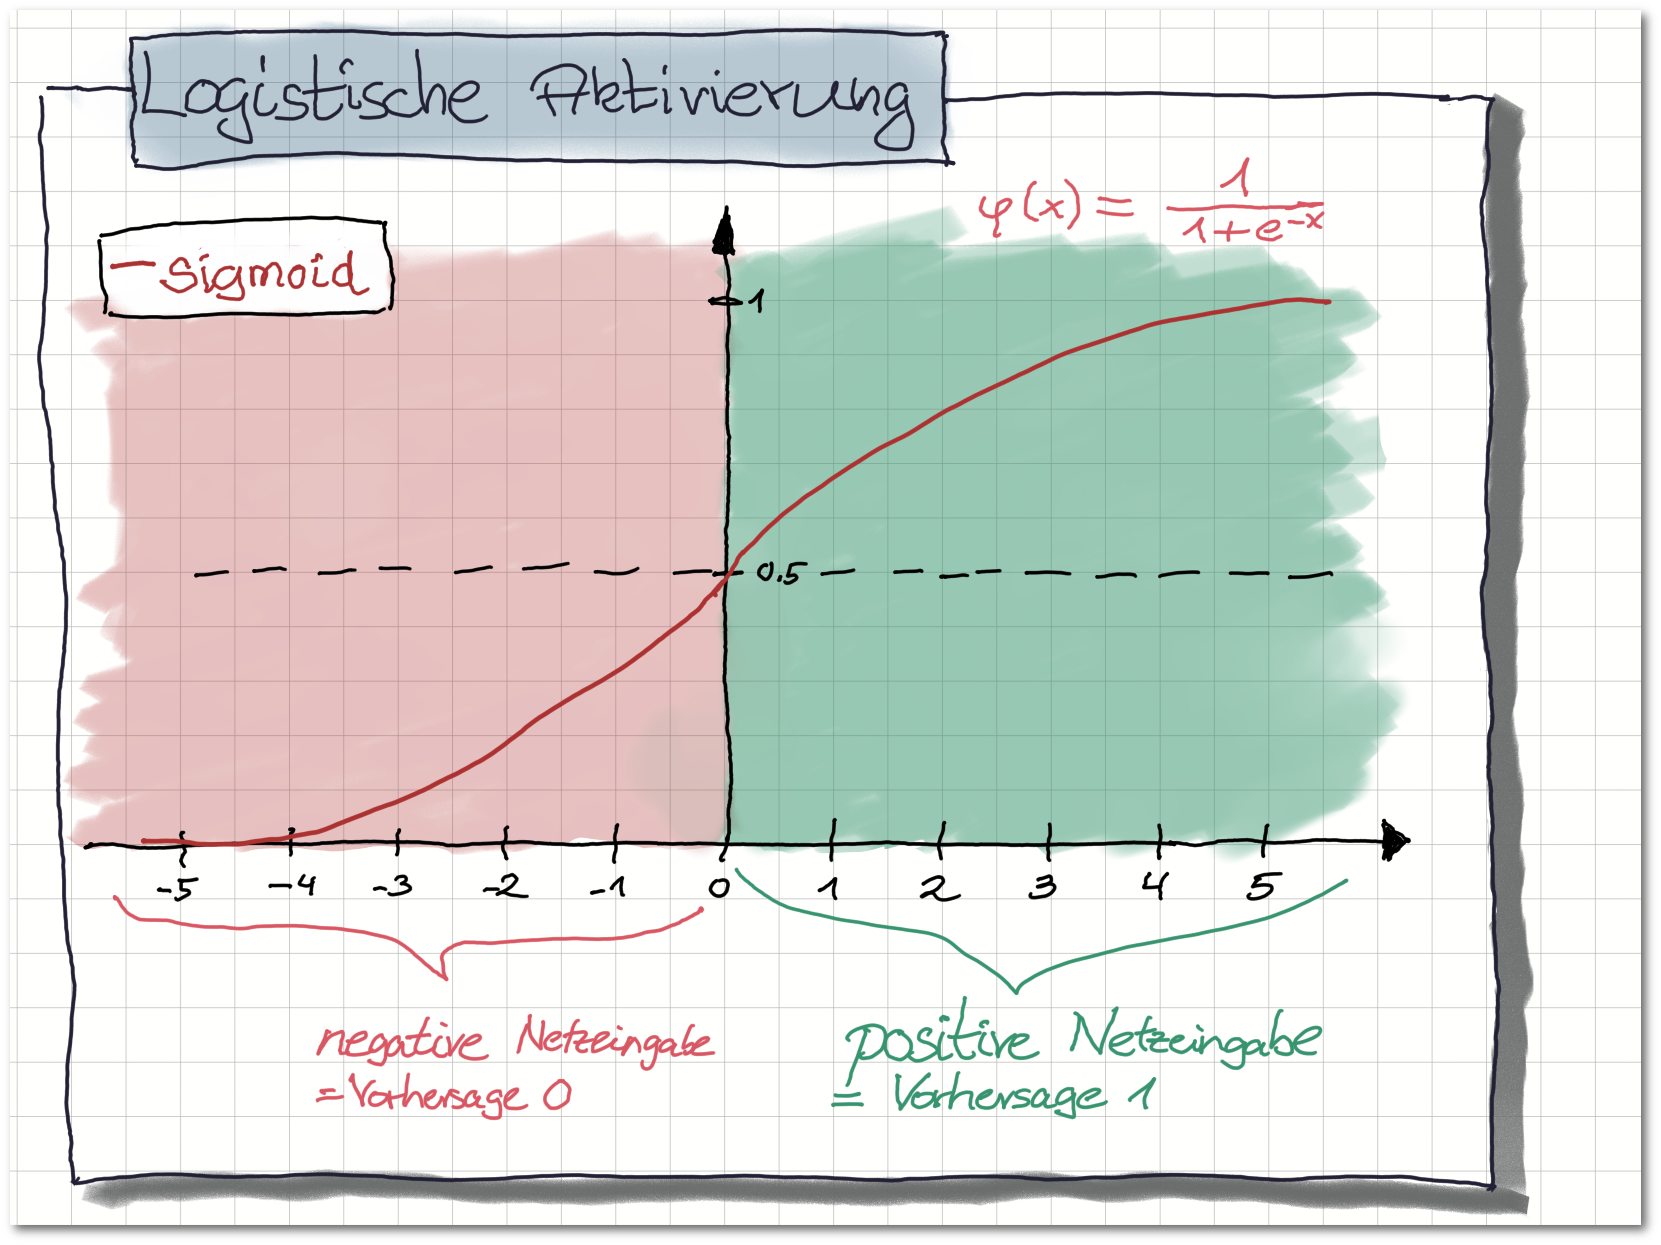 Logistische Aktivierung
φ(x) = 1 / 1+e^-x
— Sigmoid
1
0.5
-5 -4 -3 -2 -1 0 1 2 3 4 5
negative Netzeingabe
= Vorhersage 0
positive Netzeingabe
= Vorhersage 1